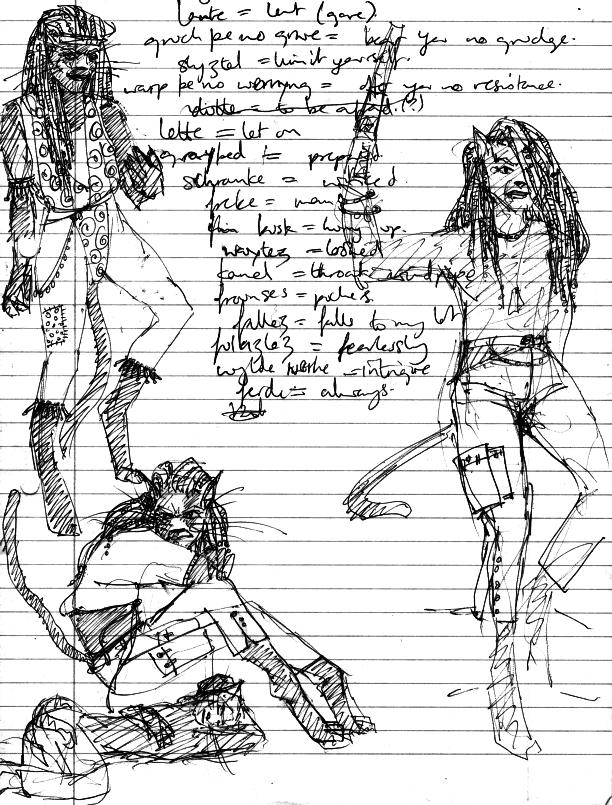 lente = lent (gave)
gruch þe no more = bear you no grudge.
styztel = limit yourself.
warp þe no wernyng = offer you no resistance.
= to be afraid (?)
lette = let on
graythed = prepared.
schranke = winced
freke = man
= hung up.
wayted = looked
= throat, windpipe
= pushes.
fallez = falls to my lot
= fearlessly
wylde werke = intrigue
ferde = always.